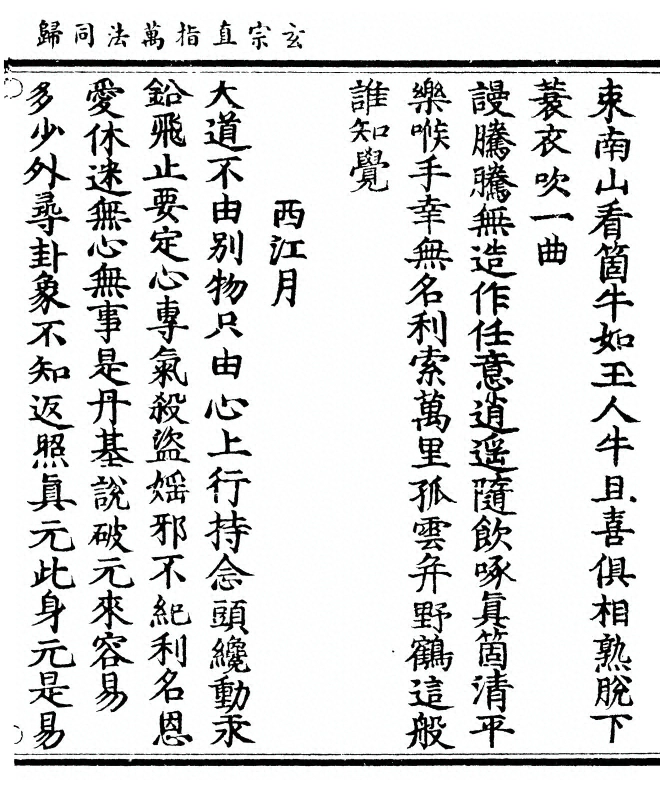 玄宗直指萬法同歸
東南山看箇牛如玉人牛且喜俱相熟脫下
蓑衣吹一曲
謾騰騰無造作任意逍遥隨飲啄眞箇清平
樂喉手幸無名利索萬里孤雲弁野鶴這般
誰知覺
西江月
大道不由別物只由心上行持念頭纔動汞
鉛飛止要定心專氣殺盜婬邪不紀利名恩
愛休迷無心無事是丹基說破元來容易
多少外尋卦象不知返照眞元此身元是易